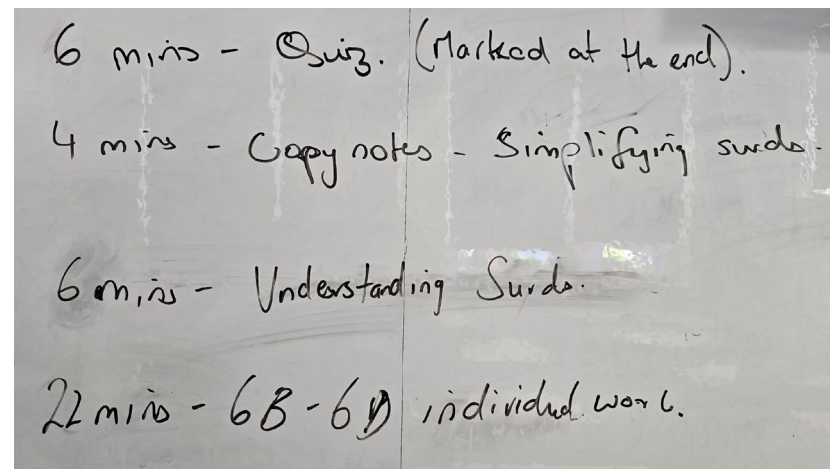 6 mins - Quiz. (Marked at the end).
4 mins - Copy notes - Simplifying surds.
6 mins - Understanding Surds.
22 mins - 6B - 6D individual work.